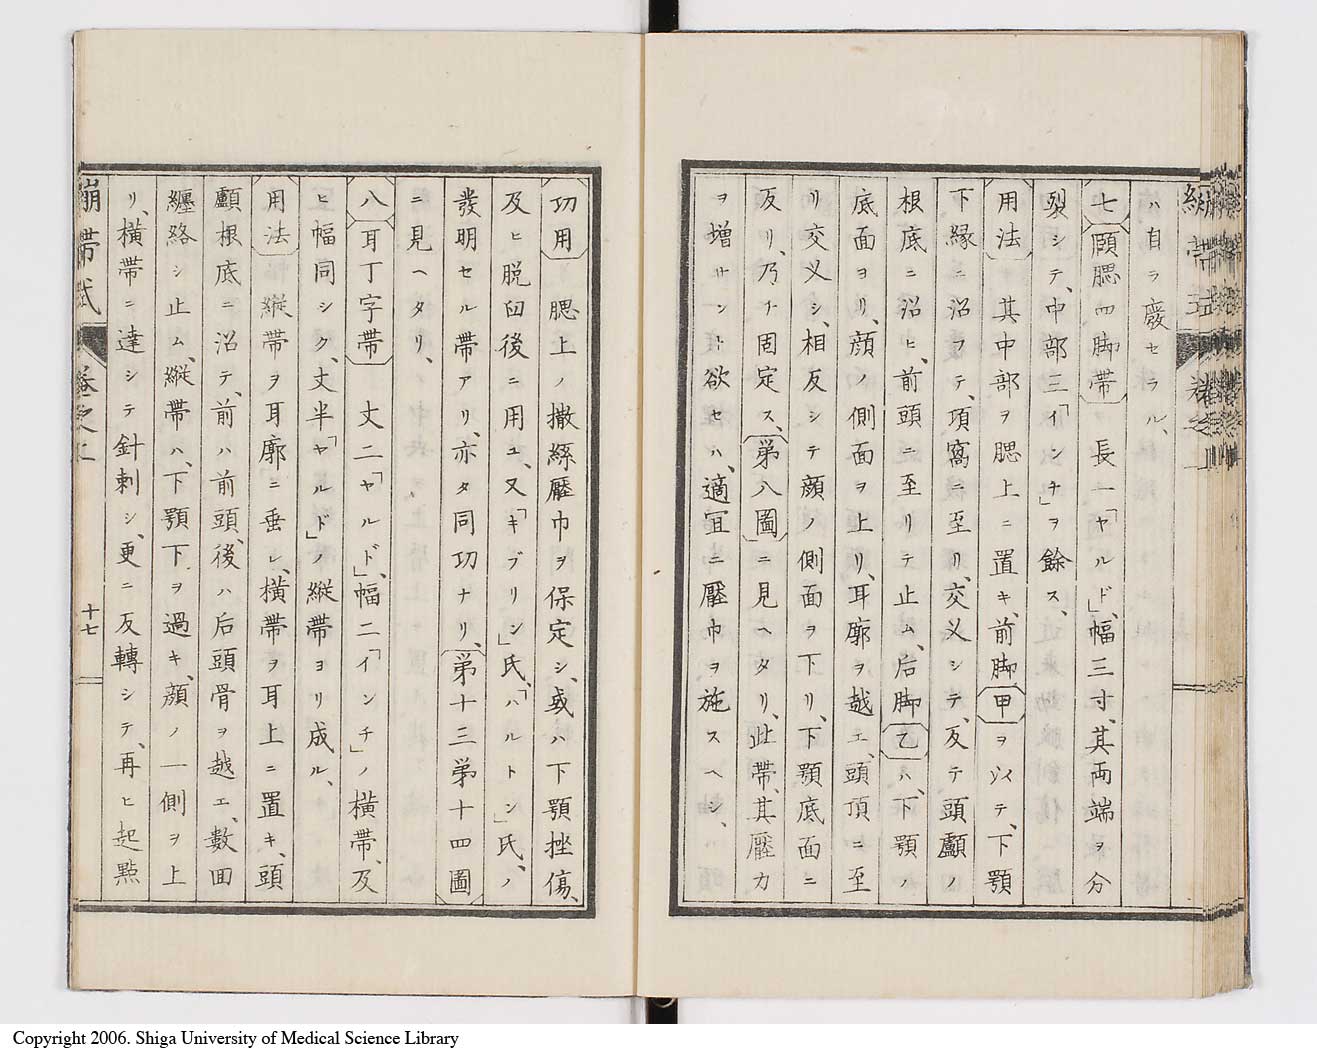 ハ自ヲ廢セラル、
七 頤腮四脚帶 長一「ヤルド」、幅三寸、其両端ヲ分
裂シテ、中部三「インチ」ヲ餘ス、
用法 其中部ヲ腮上ニ置キ、前脚甲ヲ以テ、下顎
下縁ニ沿フテ、項窩ニ至リ、交叉シテ、反テ頭顱ノ
根底ニ沿ヒ、前頭ニ至リテ止ム、后脚乙ハ、下顎ノ
底面ヨリ、顔ノ側面ヲ上リ、耳廓ヲ越エ、頭頂ニ至
リ交叉シ、相反シテ顔ノ側面ヲ下リ、下顎底面ニ
反リ、乃ナ固定ス、第八圖ニ見ヘタリ、此帶、其壓力
ヲ増サント欲セハ、適宜ニ壓巾ヲ施スヘシ、
功用 腮上ノ撒絲壓巾ヲ保定シ、或ハ下顎挫傷、
及ヒ脱臼後ニ用ユ、又「キブリン」氏、「ハルトン」氏、ノ
發明セル帶アリ、亦タ同功ナリ、第十三第十四圖
ニ見ヘタリ、
八 耳丁字帶 丈二「ヤルド」、幅二「インチ」ノ横帶、及
ヒ幅同シク、丈半「ヤルド」ノ縦帶ヨリ成ル、
用法 縦帶ヲ耳廓ニ垂レ、横帶ヲ耳上ニ置キ、頭
顱根底ニ沿テ、前ハ前頭、後ハ后頭骨ヲ越エ、數回
纏絡シ止ム、縦帶ハ、下顎下ヲ過キ、顔ノ一側ヲ上
リ、横帶ニ達シテ針刺シ、更ニ反轉シテ、再ヒ起點
繃帶式 卷之上 十七
Copyright 2006. Shiga University of Medical Science Library